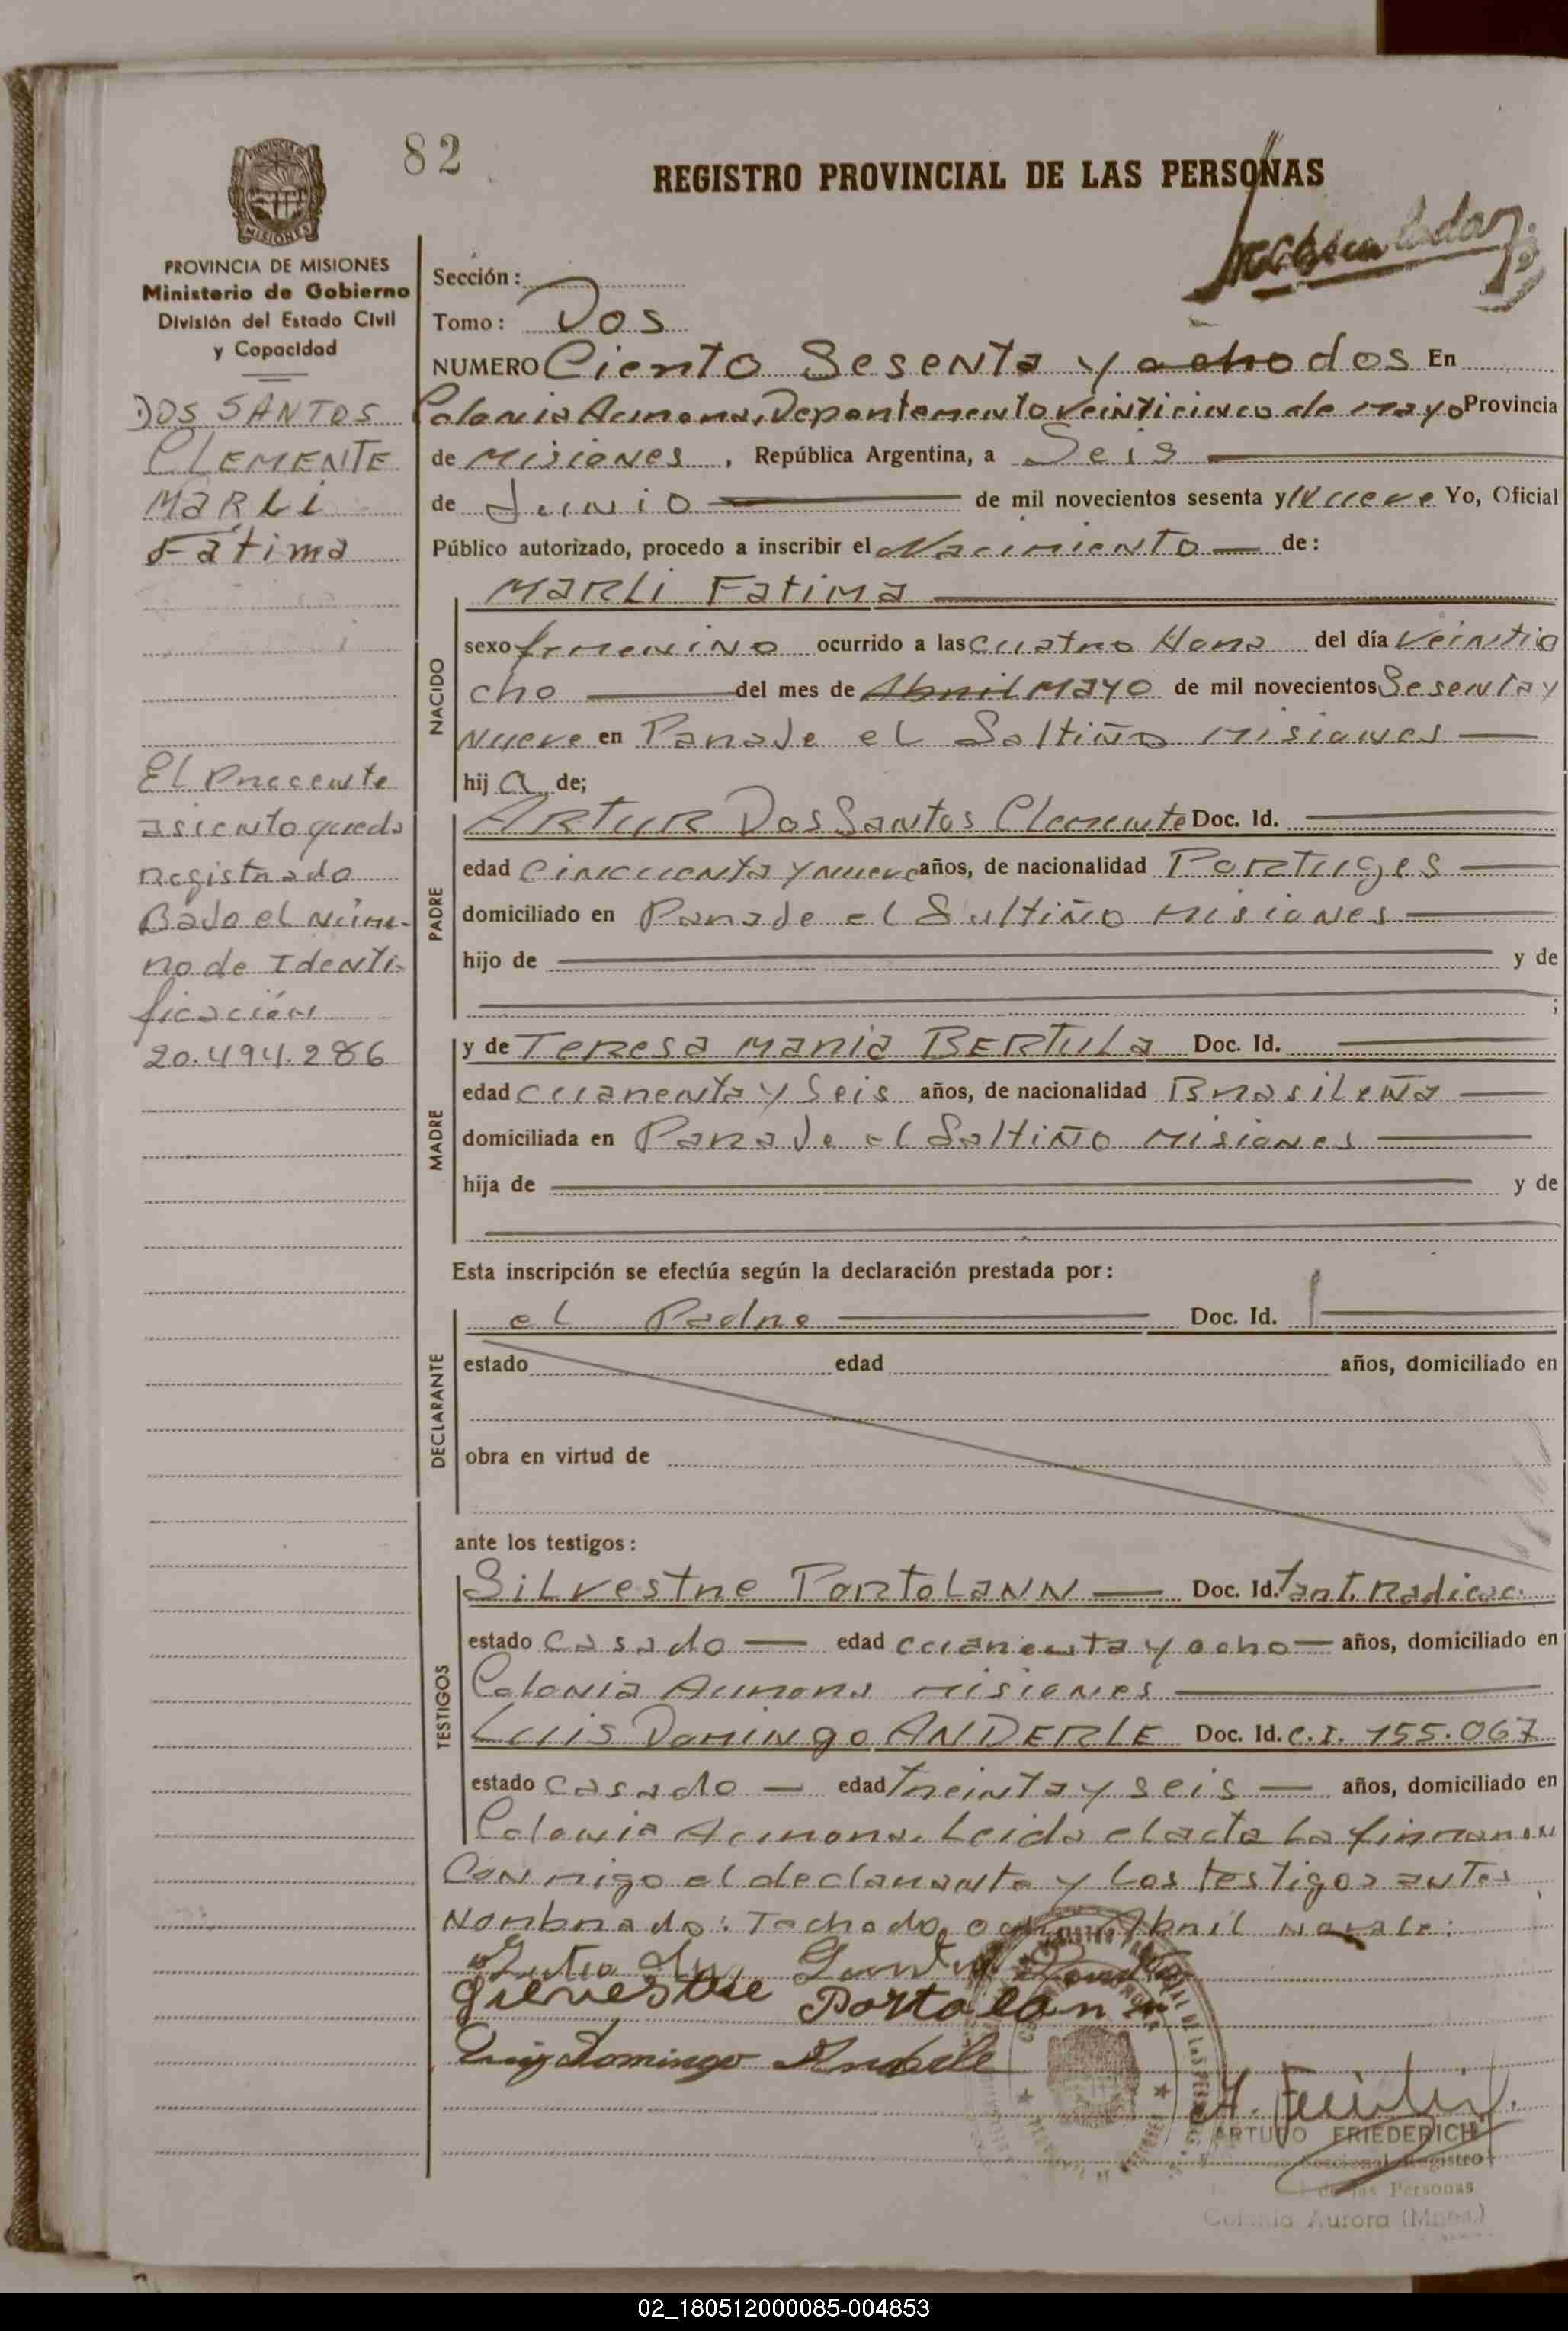 82
REGISTRO PROVINCIAL DE LAS PERSONAS
MISIONES
PROVINCIA DE MISIONES
Ministerio de Gobierno
División del Estado Civil
y Capacidad
DOS SANTOS
CLEMENTE
MARLI
Fátima
El Presente
asiento queda
registrado
Bajo el Núme-
ro de Identi-
ficación
20.494.286
Sección:
Tomo: Dos
NUMERO Ciento Sesenta y ocho dos En
Colonia Aurora, Departamento Veinticinco de mayo Provincia
de Misiones, República Argentina, a Seis
de Junio de mil novecientos sesenta y Nueve Yo, Oficial
Público autorizado, procedo a inscribir el Nacimiento de:
NACIDO
MARLi FatiMa
sexo femenino ocurrido a las cuatro Hora del día Veintio
cho del mes de Abril MAYO de mil novecientos Sesenta y
Nueve en Paraje el Saltiño Misiones
hij a de;
PADRE
ARTUR Dos Santos Clemente Doc. Id.
edad Cincuenta y nueve años, de nacionalidad Portuges
domiciliado en Paraje el Sultiño Misiones
hijo de y de
;
MADRE
y de Teresa Maria BERTULa Doc. Id.
edad cuarenta y Seis años, de nacionalidad Brasileña
domiciliada en Paraje el Saltiño Misiones
hija de y de
Esta inscripción se efectúa según la declaración prestada por:
DECLARANTE
el Padre Doc. Id.
estado edad años, domiciliado en
obra en virtud de
ante los testigos:
TESTIGOS
Silvestre PortoLaNN Doc. Id. Tant. Radicac.
estado Casado edad cuarenta y ocho años, domiciliado en
Colonia Aurora Misiones
Luis Domingo ANDERLE Doc. Id. C.I. 155.067
estado Casado edad treinta y seis años, domiciliado en
Colonia Aurora. Leida el acta La firmaron
Conmigo el declarante y Los testigos antes
Nombrado: Tachado ocho Abril no vale:
Portolan
Luiz Domingo Anderle
ARTURO FRIEDERICH
Seccional Registro
de las Personas
Colonia Aurora (Mnes.)
02_180512000085-004853